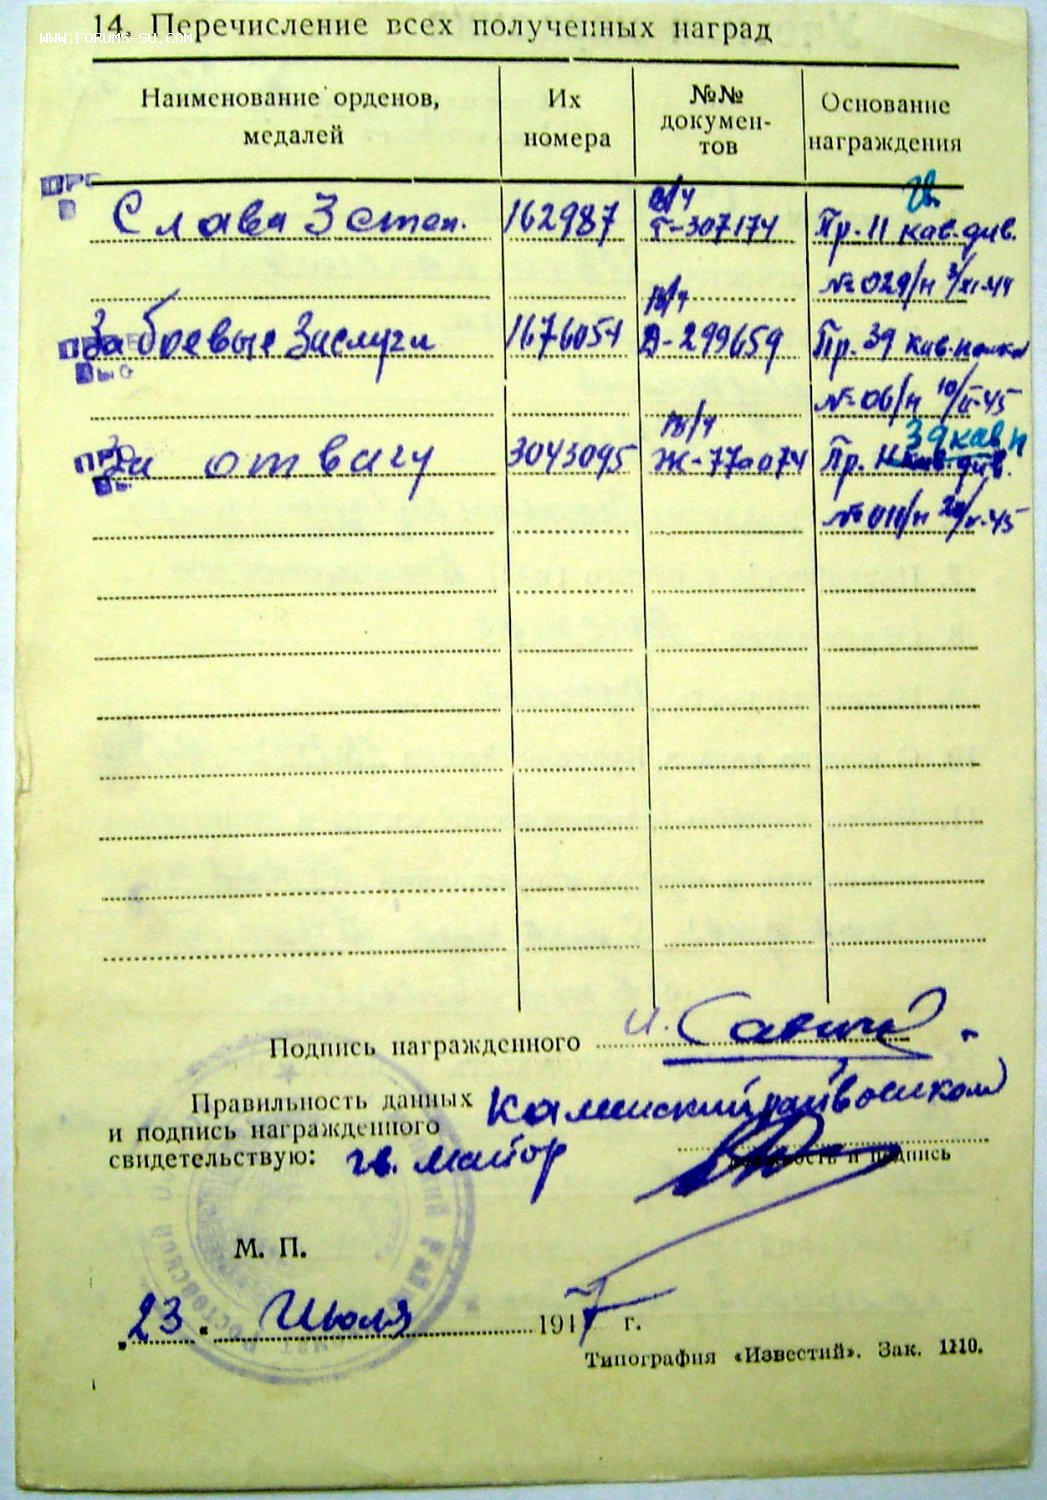 14. Перечисление всех полученных наград
WWW.FORUMS-SU.COM
Наименование орденов, медалей
Их номера
№№ документов
Основание награждения
Слава 3 степ. 162987 в/ч Г-307174 Пр. 11 гв. кав. див.
№ 029/н 3/XI-44
За боевые Заслуги 1676054 в/ч Д-299659 Пр. 39 кав. полка
№ 06/н 10/II-45
За отвагу 3043095 в/ч Ж-770074 Пр. 39 кав п
№ 011/н /V-45
Подпись награжденного
Правильность данных Каменский райвоенком
и подпись награжденного
свидетельствую: гв. майор
должность и подпись
М. П.
„23" Июля 1947 г.
Типография «Известий». Зак. 1210.